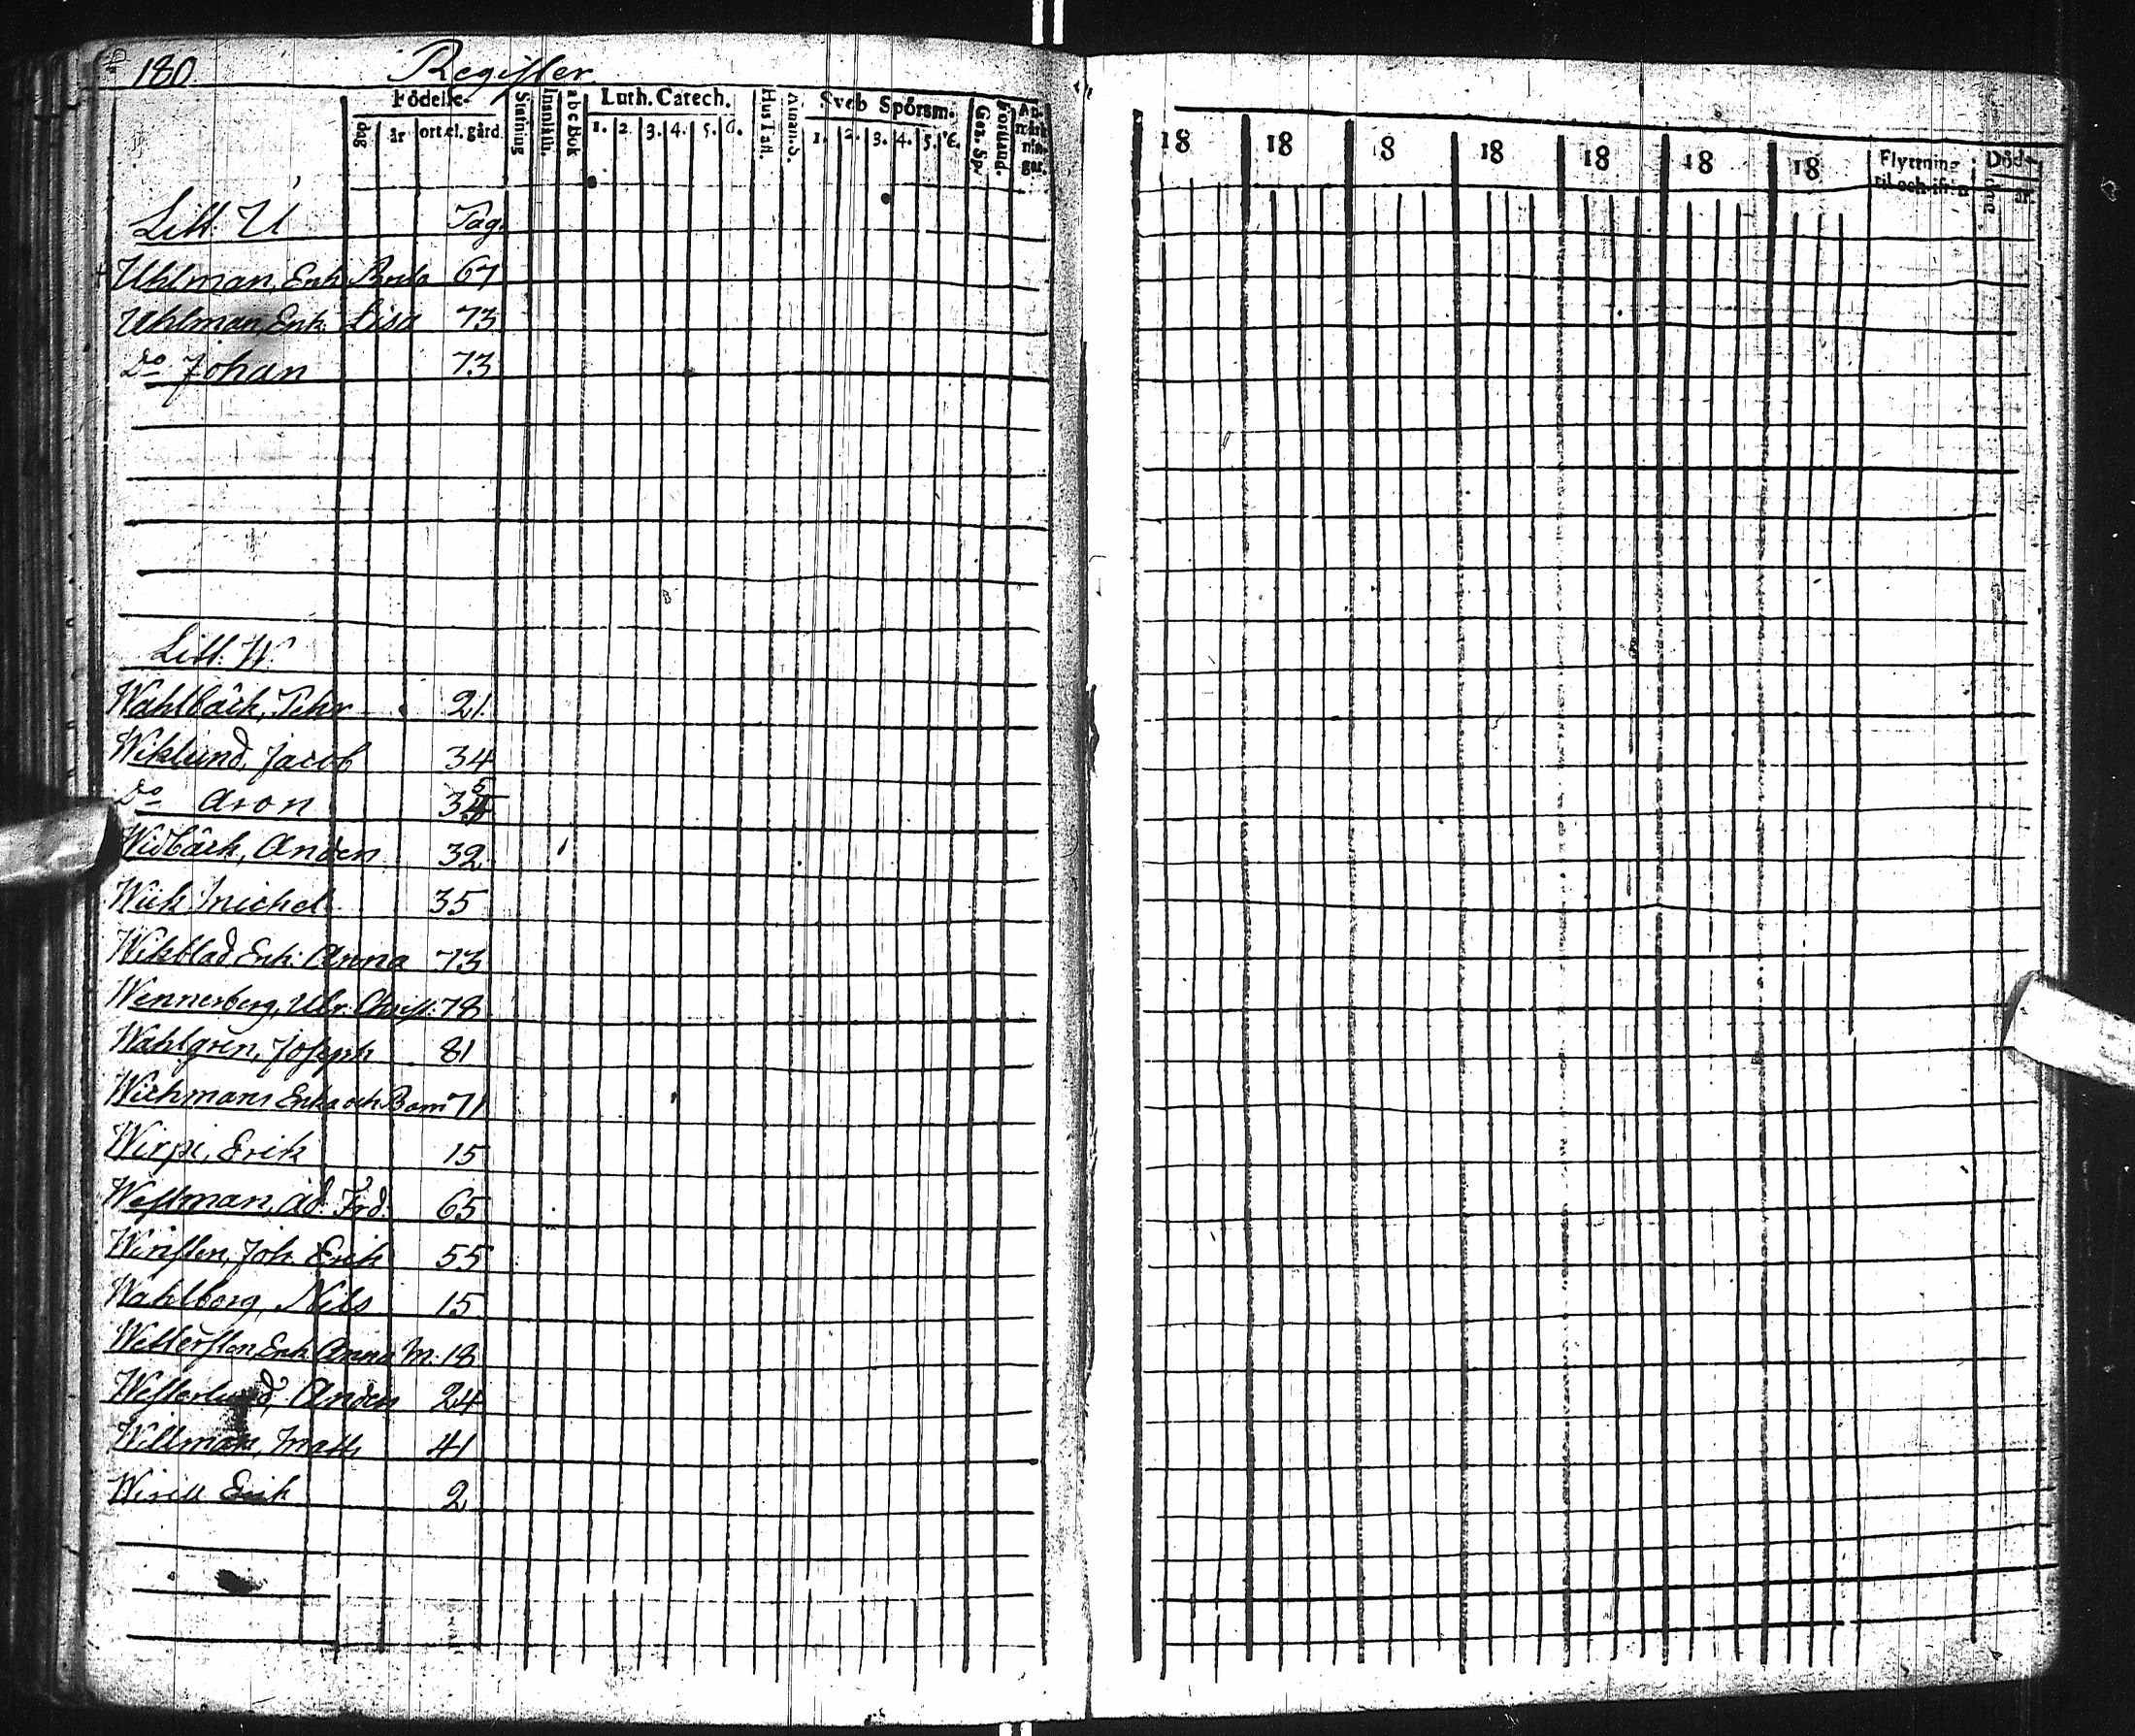 180. Register
Födelse-
dag år ort el. gård.
Stafning
Innanläsn.
abc Bok
Luth. Catech.
1. 2. 3. 4. 5. 6.
Hus Tafl.
Athan. S.
Sveb Spörsm.
1. 2. 3. 4. 5. 6.
Ges. Sp.
Förstånd.
An-
märk
nin-
gar.
Litt. U Pag.
Uhlman, Enk. Brita 67
Uhlman, Enk. Lisa 73
Do Johan 73
Litt. W.
Wahlbäck, Pehr 21
Wiklund, Jacob 34
Do Aron 35
Widbäck, Anders 32
Wiik Michel 35
Wikblad Enk: Anna 73
Wennerberg, Ulr. Christ: 78
Wahlgren, Joseph 81
Wichmans Enka och Barn 71
Wirpi, Erik 15
Westman, Ad. Frd. 65
Winsten, Joh. Erik 55
Wahlborg, Nils 15
Wettersten Enk. Anna M. 18
Westerlund, Anders 24
Willman, Matts 41
Wirell Erik 2
18 18 18 18 18 18 18
Flyttning
til och ifrån
Död-
dag år.